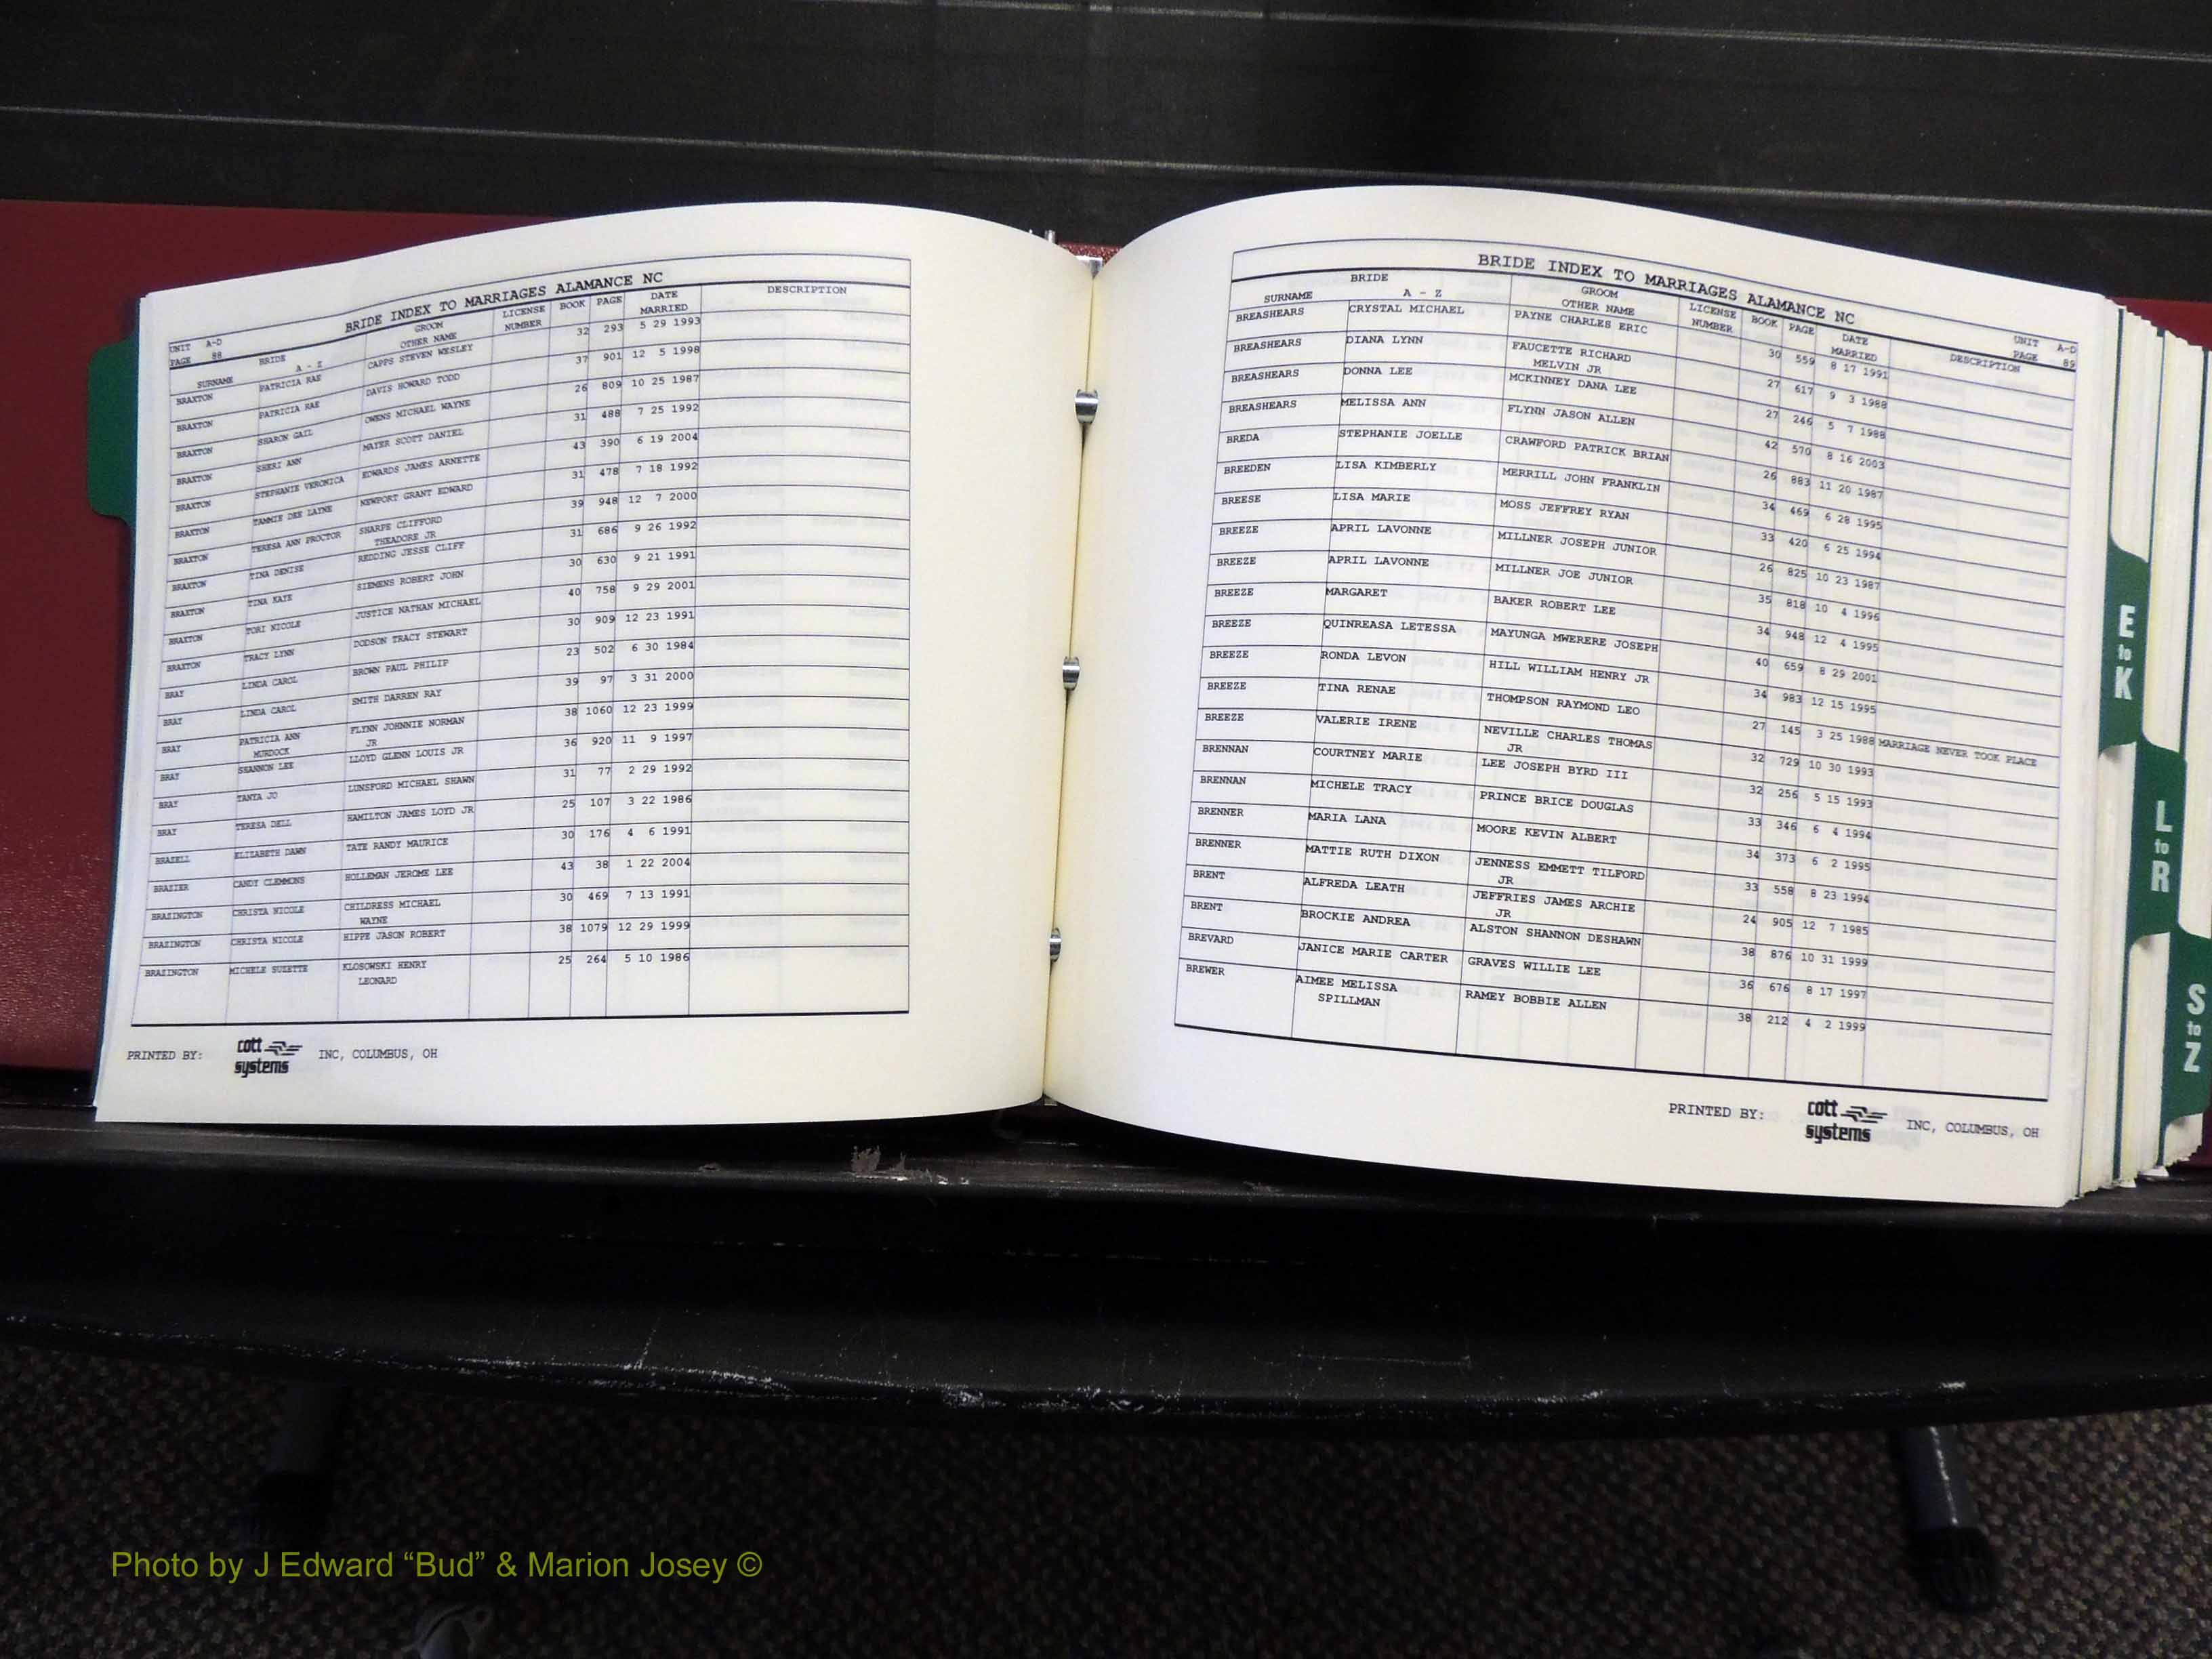 BRIDE INDEX TO MARRIAGES ALAMANCE NC
UNIT A-D
PAGE 88
BRIDE GROOM LICENSE BOOK PAGE DATE DESCRIPTION
SURNAME A - Z OTHER NAME NUMBER MARRIED
BRAXTON PATRICIA RAE CAPPS STEVEN WESLEY 32 293 5 29 1993
BRAXTON PATRICIA RAE DAVIS HOWARD TODD 37 901 12 5 1998
BRAXTON SHARON GAIL OWENS MICHAEL WAYNE 26 809 10 25 1987
BRAXTON SHERI ANN MAYER SCOTT DANIEL 31 488 7 25 1992
BRAXTON STEPHANIE VERONICA EDWARDS JAMES ARNETTE 43 390 6 19 2004
BRAXTON TAMMIE DEE LAYNE NEWPORT GRANT EDWARD 31 478 7 18 1992
BRAXTON TERESA ANN PROCTOR SHARPE CLIFFORD 39 948 12 7 2000
THEADORE JR
BRAXTON TINA DENISE REDDING JESSE CLIFF 31 686 9 26 1992
BRAXTON TINA KAYE SIEMENS ROBERT JOHN 30 630 9 21 1991
BRAXTON TORI NICOLE JUSTICE NATHAN MICHAEL 40 758 9 29 2001
BRAXTON TRACY LYNN DODSON TRACY STEWART 30 909 12 23 1991
BRAY LINDA CAROL BROWN PAUL PHILIP 23 502 6 30 1984
BRAY LINDA CAROL SMITH DARREN RAY 39 97 3 31 2000
BRAY PATRICIA ANN FLYNN JOHNNIE NORMAN 38 1060 12 23 1999
MURDOCK JR
BRAY SHANNON LEE LLOYD GLENN LOUIS JR 36 920 11 9 1997
BRAY TANYA JO LUNSFORD MICHAEL SHAWN 31 77 2 29 1992
BRAY TERESA DELL HAMILTON JAMES LOYD JR 25 107 3 22 1986
BRAZELL ELIZABETH DAWN TATE RANDY MAURICE 30 176 4 6 1991
BRAZIER CANDY CLEMMONS HOLLEMAN JEROME LEE 43 38 1 22 2004
BRAZINGTON CHRISTA NICOLE CHILDRESS MICHAEL 30 469 7 13 1991
WAYNE
BRAZINGTON CHRISTA NICOLE HIPPE JASON ROBERT 38 1079 12 29 1999
BRAZINGTON MICHELE SUZETTE KLOSOWSKI HENRY 25 264 5 10 1986
LEONARD
PRINTED BY: cott systems INC, COLUMBUS, OH
BRIDE INDEX TO MARRIAGES ALAMANCE NC
UNIT A-D
PAGE 89
BRIDE GROOM LICENSE BOOK PAGE DATE DESCRIPTION
SURNAME A - Z OTHER NAME NUMBER MARRIED
BREASHEARS CRYSTAL MICHAEL PAYNE CHARLES ERIC 30 559 8 17 1991
BREASHEARS DIANA LYNN FAUCETTE RICHARD 27 617 9 3 1988
MELVIN JR
BREASHEARS DONNA LEE MCKINNEY DANA LEE 27 246 5 7 1988
BREASHEARS MELISSA ANN FLYNN JASON ALLEN 42 570 8 16 2003
BREDA STEPHANIE JOELLE CRAWFORD PATRICK BRIAN 26 883 11 20 1987
BREEDEN LISA KIMBERLY MERRILL JOHN FRANKLIN 34 469 6 28 1995
BREESE LISA MARIE MOSS JEFFREY RYAN 33 420 6 25 1994
BREEZE APRIL LAVONNE MILLNER JOSEPH JUNIOR 26 825 10 23 1987
BREEZE APRIL LAVONNE MILLNER JOE JUNIOR 35 818 10 4 1996
BREEZE MARGARET BAKER ROBERT LEE 34 948 12 4 1995
BREEZE QUINREASA LETESSA MAYUNGA MWERERE JOSEPH 40 659 8 29 2001
BREEZE RONDA LEVON HILL WILLIAM HENRY JR 34 983 12 15 1995
BREEZE TINA RENAE THOMPSON RAYMOND LEO 27 145 3 25 1988 MARRIAGE NEVER TOOK PLACE
BREEZE VALERIE IRENE NEVILLE CHARLES THOMAS 32 729 10 30 1993
JR
BRENNAN COURTNEY MARIE LEE JOSEPH BYRD III 32 256 5 15 1993
BRENNAN MICHELE TRACY PRINCE BRICE DOUGLAS 33 346 6 4 1994
BRENNER MARIA LANA MOORE KEVIN ALBERT 34 373 6 2 1995
BRENNER MATTIE RUTH DIXON JENNESS EMMETT TILFORD 33 558 8 23 1994
JR
BRENT ALFREDA LEATH JEFFRIES JAMES ARCHIE 24 905 12 7 1985
JR
BRENT BROCKIE ANDREA ALSTON SHANNON DESHAWN 38 876 10 31 1999
BREVARD JANICE MARIE CARTER GRAVES WILLIE LEE 36 676 8 17 1997
BREWER AIMEE MELISSA RAMEY BOBBIE ALLEN 38 212 4 2 1999
SPILLMAN
PRINTED BY: cott systems INC, COLUMBUS, OH
E to K
L to R
S to Z
Photo by J Edward “Bud” & Marion Josey ©